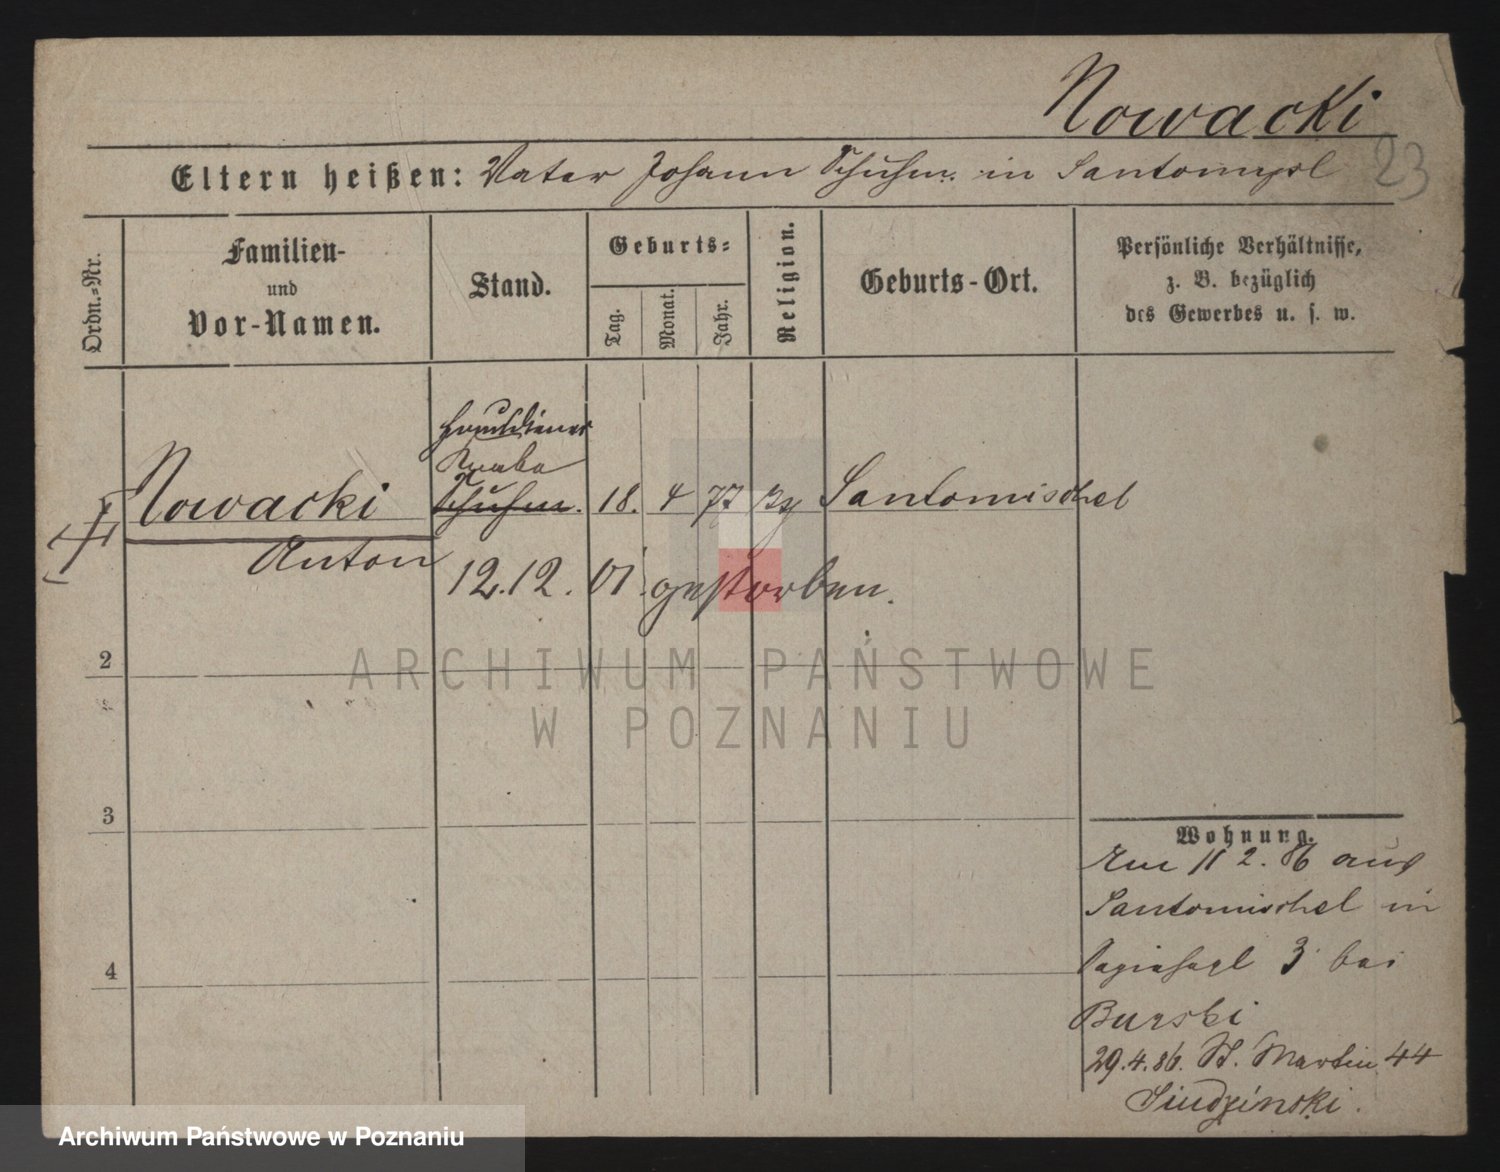 Nowacki
23
Eltern heißen: Vater Johann Schuhm. in Santomysl
Ordn.-Nr.
Familien-
und
Vor-Namen.
Stand.
Geburts-
Tag.
Monat.
Jahr.
Religion.
Geburts-Ort.
Persönliche Verhältnisse,
z. B. bezüglich
des Gewerbes u. s. w.
Hausdiener
Knabe
Nowacki Schuhm. 18. 4 77 Santomischel
Anton
12.12. 01. gestorben.
2
3
4
ARCHIWUM PAŃSTWOWE
W POZNANIU
Wohnung.
Am 11 2. 86 aus
Santomischel in
3 bei
Burski
29.4.86. St. Martin 44
Siudzinski.
Archiwum Państwowe w Poznaniu